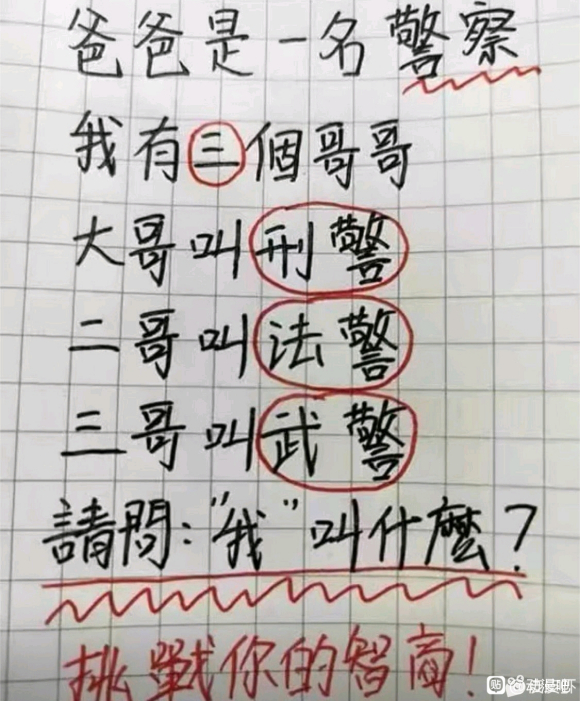 爸爸是一名警察
我有三個哥哥
大哥叫刑警
二哥叫法警
三哥叫武警
請問:"我"叫什麼?
挑戰你的智商!